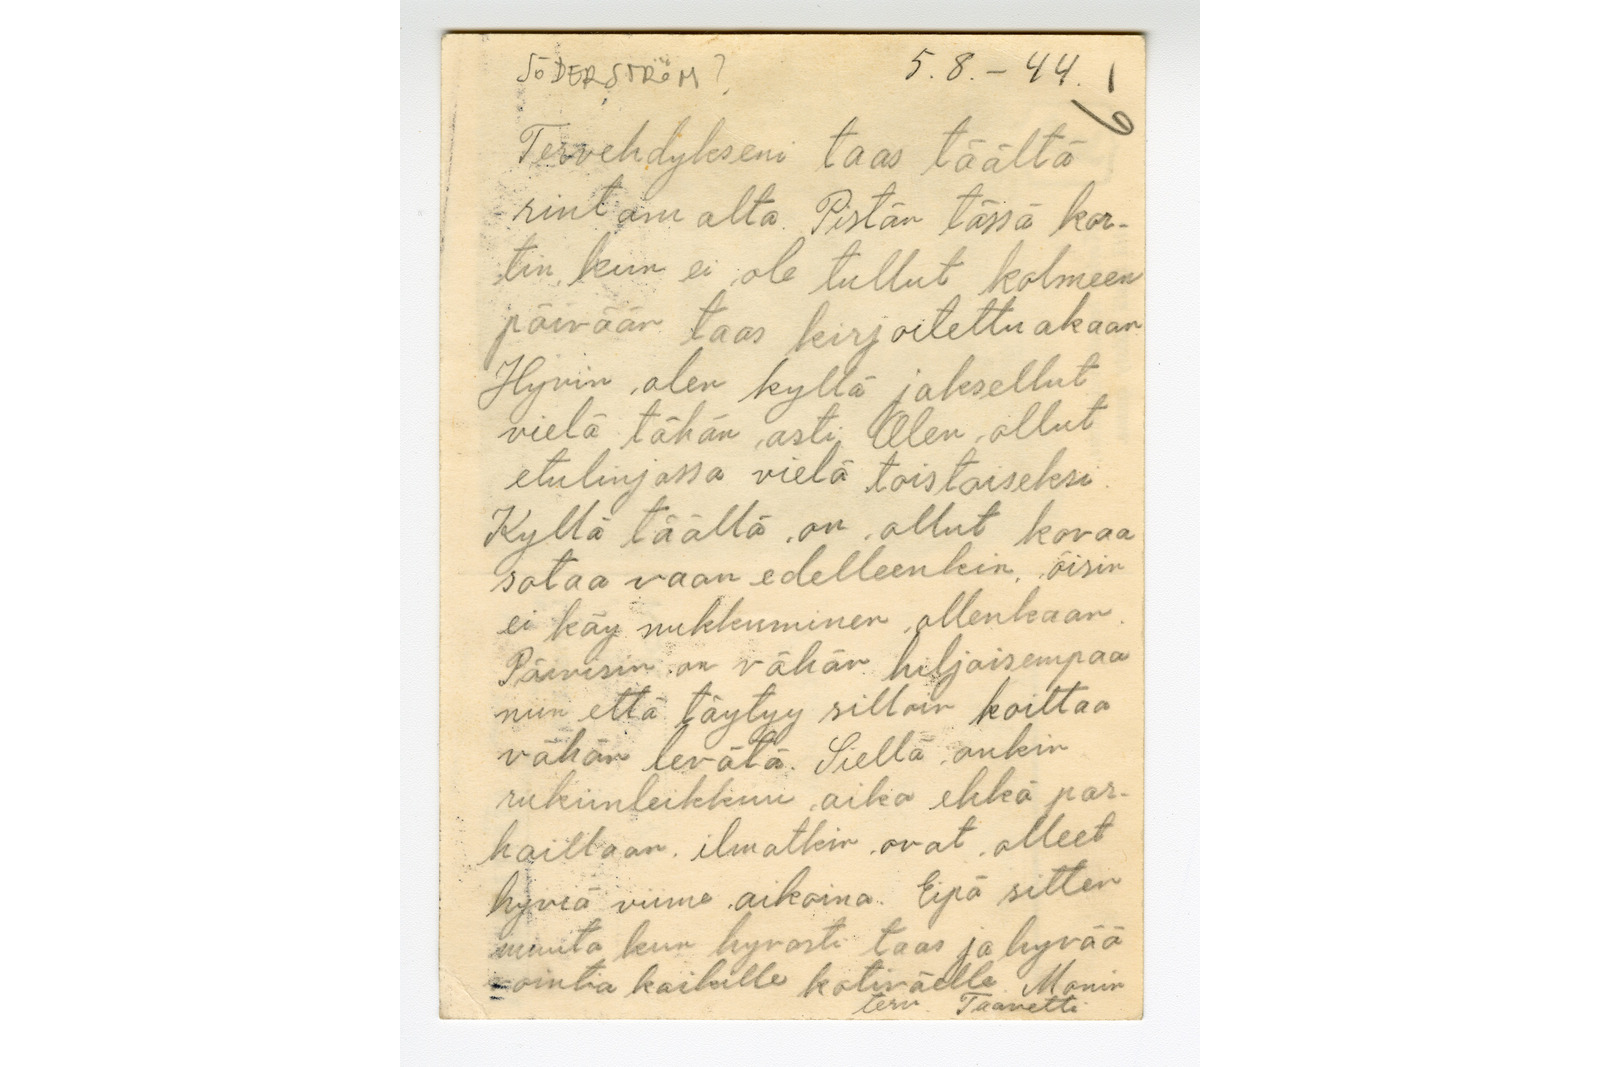 SÖDERSTRÖM?
5.8.-44.
Tervehdykseni taas täältä
rintamalta. Pistän tässä kor-
tin, kun ei ole tullut kolmeen
päivään taas kirjoitettuakaan
Hyvin olen kyllä jaksellut
vielä tähän asti. Olen ollut
etulinjassa vielä toistaiseksi.
Kyllä täällä on ollut kovaa
sotaa vaan edelleenkin, öisin
ei käy nukkuminen ollenkaan.
Päivisin on vähän hiljaisempaa
niin että täytyy silloin koittaa
vähän levätä. Siellä onkin
rukiinleikkuu aika ehkä par-
haillaan. ilmatkin ovat olleet
hyviä viime aikoina. Eipä sitten
muuta kun hyvästi taas ja hyvää
vointia kaikille kotiväelle. Monin
terv. Taavetti